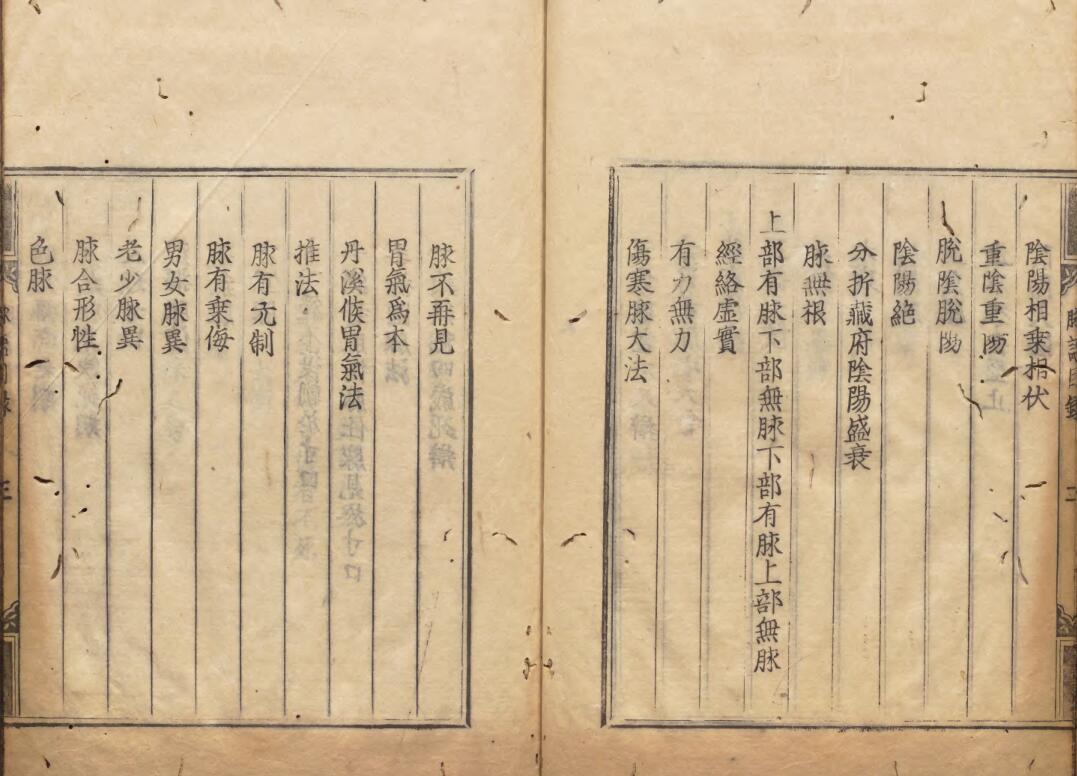 陰陽相乗相伏
重陰重陽
脫陰脫陽
陰陽絕
分折藏府陰陽盛衰
脉無根
上部有脉下部無脉下部有脉上部無脉
經絡虛實
有力無力
傷寒脉大法
脉不再見
胃氣爲本
丹溪候胃氣法
推法
脉有亢制
脉有乗侮
男女脉異
老少脉異
脉合形性
色脉